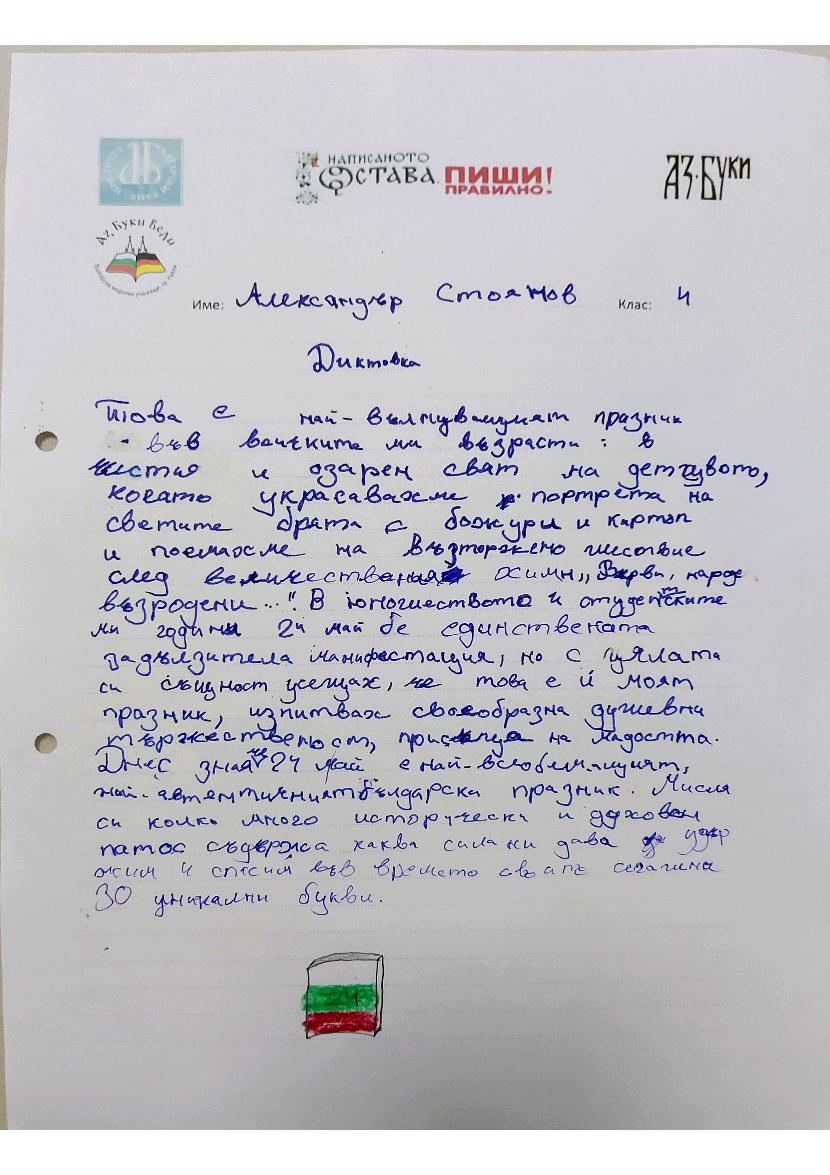 НАПИСАНОТО
ОСТАВА. ПИШИ!
ПРАВИЛНО!
АЗ·БУКИ
Аз, Буки Веди
Име: Александър Стоянов Клас: 4
Диктовка
Това е най-вълнуващият празник
във всичките ми възрасти: в
чистия и озарен свят на детството,
когато украсавахме портрета на
светите братя с божури и картоп
и поемахме на възторжено шествие
след величествения осимн „Върви, народе
възродени..." В юношеството и студентските
ми години 24 май бе единствената
задължителна манифестация, но с цялата
си същност усещах, че това е и моят
празник, изпитвах своеобразна душевна
тържественост, присъща на младостта.
Днес зная че 24 май е най-всеобемащият,
най-автентичният български празник. Мисля
си колко много исторически и духовен
патос съдържа каква сила ни дава удър
жим и спасим във времето своите
30 уникални букви.
24